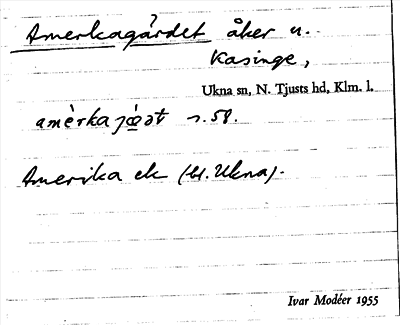 Amerkagärdet åker u.
Kasinge,
Ukna sn, N. Tjusts hd, Klm. l.
s. 58.
Amerika ek (bl. Ukna).
Ivar Modéer 1955